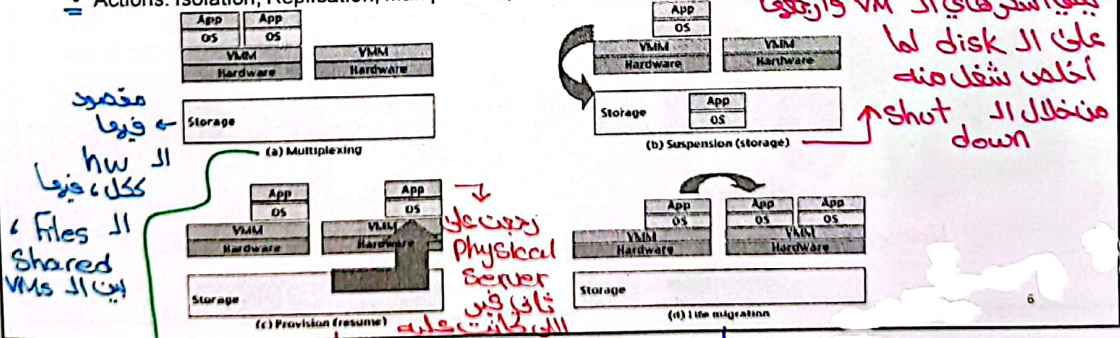 Actions: Isolation, Replication,
App App
OS OS
VMM VMM
Hardware Hardware
Storage
(a) Multiplexing
App
OS
VMM VMM
Hardware Hardware
Storage
App
OS
(b) Suspension (storage)
App App
OS OS
VMM VMM
Hardware Hardware
Storage
(c) Provision (resume)
App App App
OS OS OS
VMM VMM
Hardware Hardware
Storage
(d) Life migration
6
مقصود
فيها
ال hw
ككل، فيها
ال Files ،
Shared
بين ال VMs
ال VM
على ال disk لما
أخلص شغل منه
من خلال ال shut
down
رجعت على
Physical
Server
ثاني غير
اللي كانت عليه